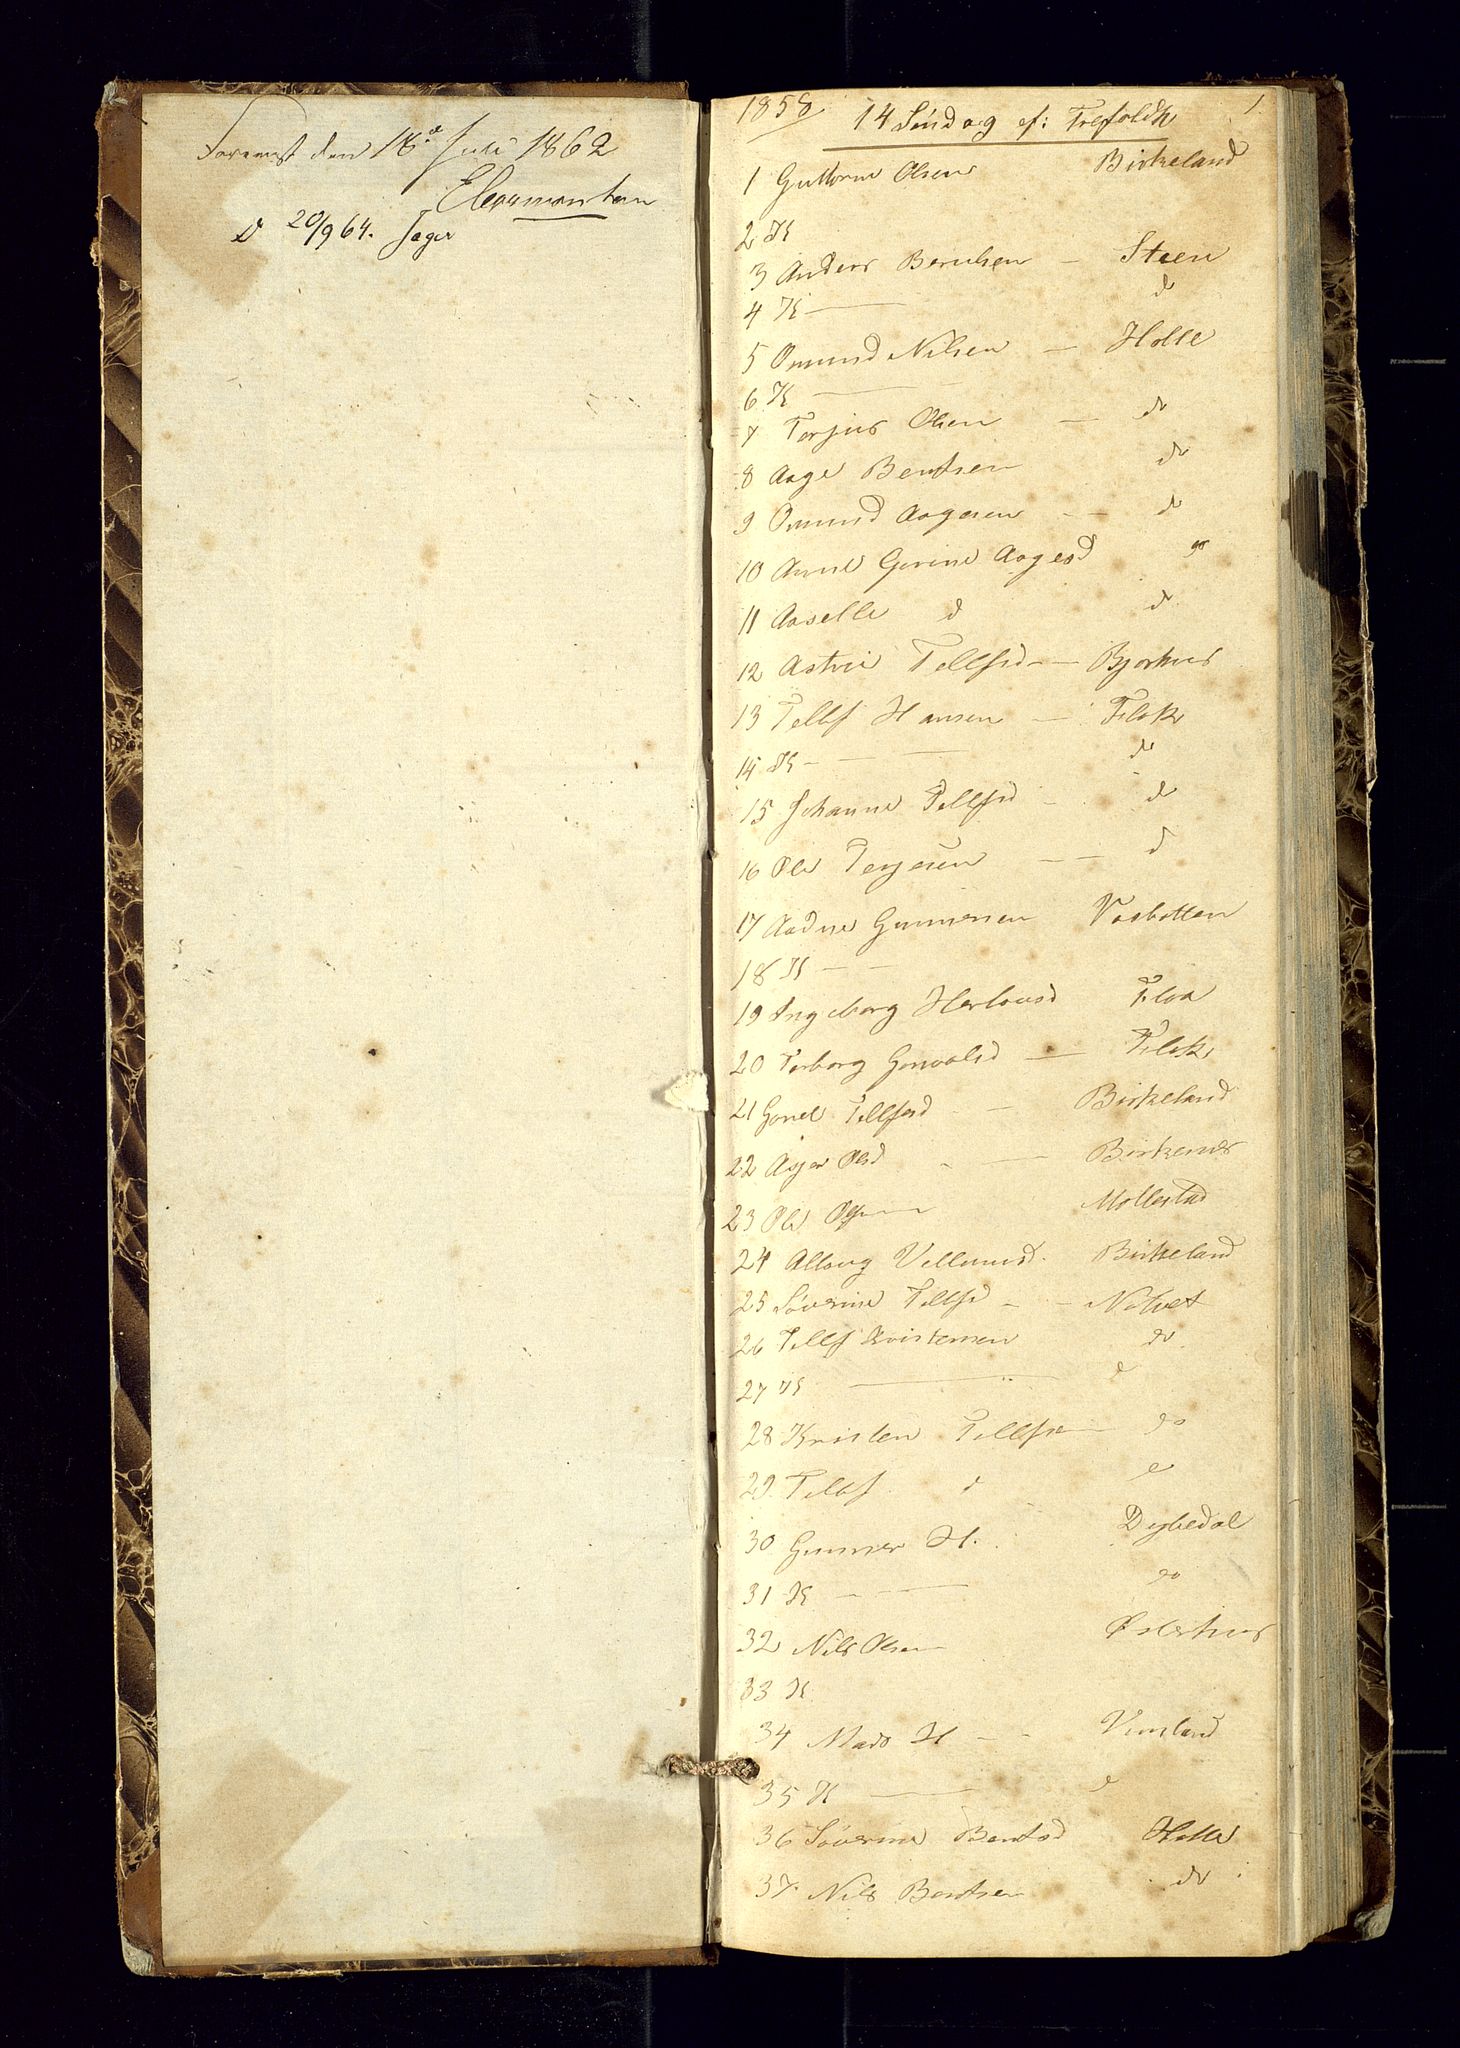 Forevist den 18de Juli 1862
d 20/9 64. Jæger
1858 14 Søndag ef: Trefoldh 1.
1 Guttorm Olsen Birkeland
2 K
3 Anders Berulsen — Steen
4 K — d
5 Omund Nilsen — Holte
6 K —
7 Terjus Olsen — do
8 Aage Bentsen do
9 Omund Aagesen — — do
10 Anne Gurine Aagesd do
11 Aaselle d do
12 Astrie Tellfsd — — Bjorhus
13 Tellf Hansen — Flak
14 K — — — do
15 Johanne Tellfsd — do
16 Ole Terjesen — — d
17 Aadne Gunnersen Vasbotten
18 K — —
19 Ingeborg Herlovsd Floa
20 Torborg Gonvalsd — Flak
21 Gonel Tellfsd — Birkeland
22 Asjer Olsd — Birkenes
23 Ole Mollestad
24 Alloug Vellumsd. Birkeland
25 Søverine Tellfsd — — Natvet
26 Tellf Kristensen do
27 K — d
28 Kristen Tellfsen do
29. Tellf d d
30 Gunner H. Dybedal
31 K — — do
32 Nils Olsen Østerhus
33 K
34 Mads H — — Vimland
35 K — d
36 Søverine Bentsd Holte
37. Nils Bentsen do